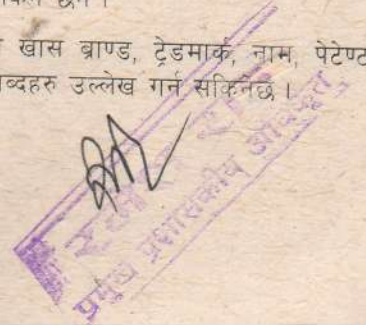 खास ब्राण्ड, ट्रेडमार्क, नाम, पेटेण्ट
ब्दहरु उल्लेख गर्न सकिनेछ ।
प्रमुख प्रशासकीय अधिकृत